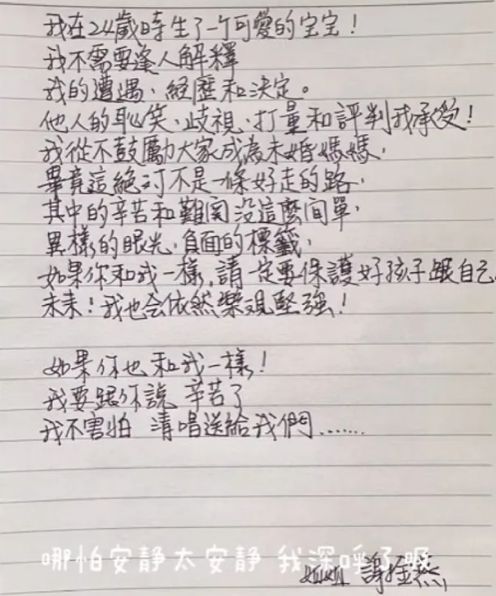 我在24歲時生了一个可愛的宝宝！
我不需要逢人解釋
我的遭遇、経歷和決定。
他人的恥笑、歧視、打量和評判我承受！
我從不鼓勵大家成為未婚媽媽，
畢竟這絕对不是一條好走的路，
其中的辛苦和難関没這麼间單，
異樣的眼光，負面的標籤，
如果你和我一樣，請一定要保護好孩子跟自己
未来！我也会依然樂観堅強！
如果你也和我一樣！
我要跟你說 辛苦了
我不害怕 清唱送給我們……
哪怕安静太安静 我深呼了眼
姐姐 謝金燕